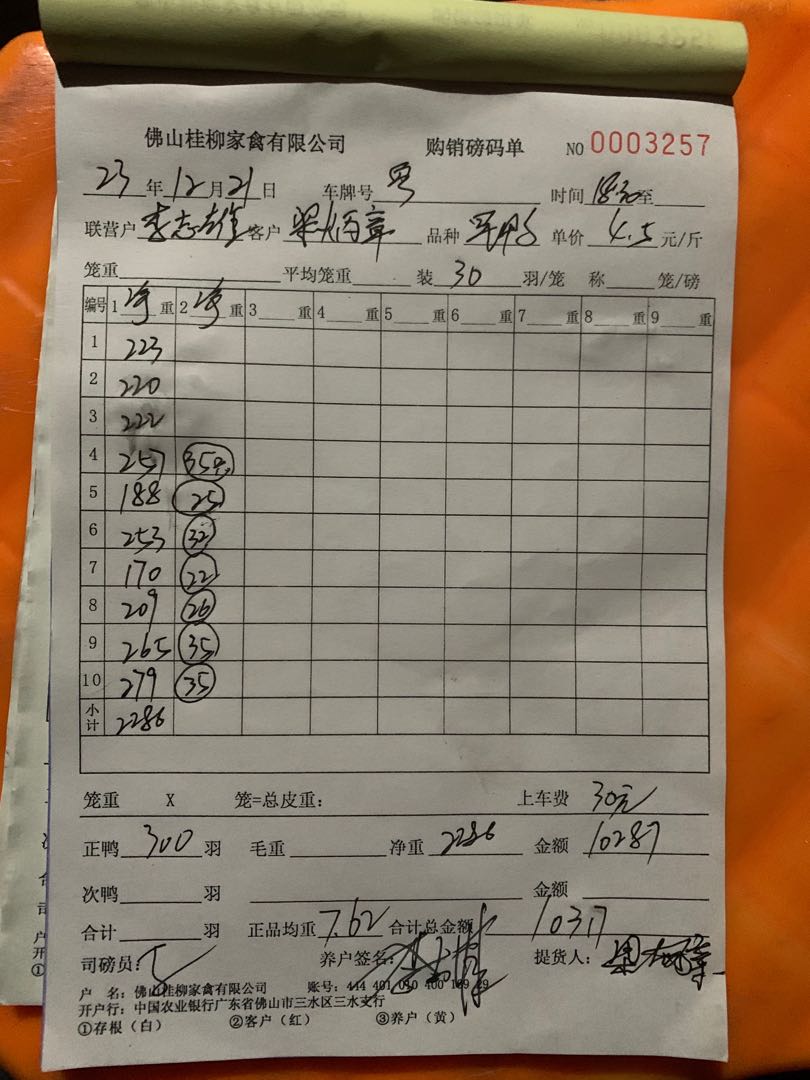 佛山桂柳家禽有限公司 购销磅码单 NO 0003257
23年12月21日 车牌号 粤 时间 18:30至
联营户 李志雄 客户 梁炳章 品种 单价 4.5 元/斤
笼重 平均笼重 装 30 羽/笼 称 笼/磅
编号 1 净 重 2 净 重 3 重 4 重 5 重 6 重 7 重 8 重 9 重
1 223
2 220
3 222
4 257 35
5 188 25
6 253 32
7 170 22
8 209 26
9 265 35
10 279 35
小计 2286
笼重 X 笼=总皮重: 上车费 30元
正鸭 300 羽 毛重 净重 2286 金额 10287
次鸭 羽 金额
合计 羽 正品均重 7.62 合计总金额 10317
司磅员: 养户签名: 提货人:
户 名: 佛山桂柳家禽有限公司 账号: 444 401 010 400
开户行: 中国农业银行广东省佛山市三水区三水支行
①存根(白) ②客户(红) ③养户(黄)